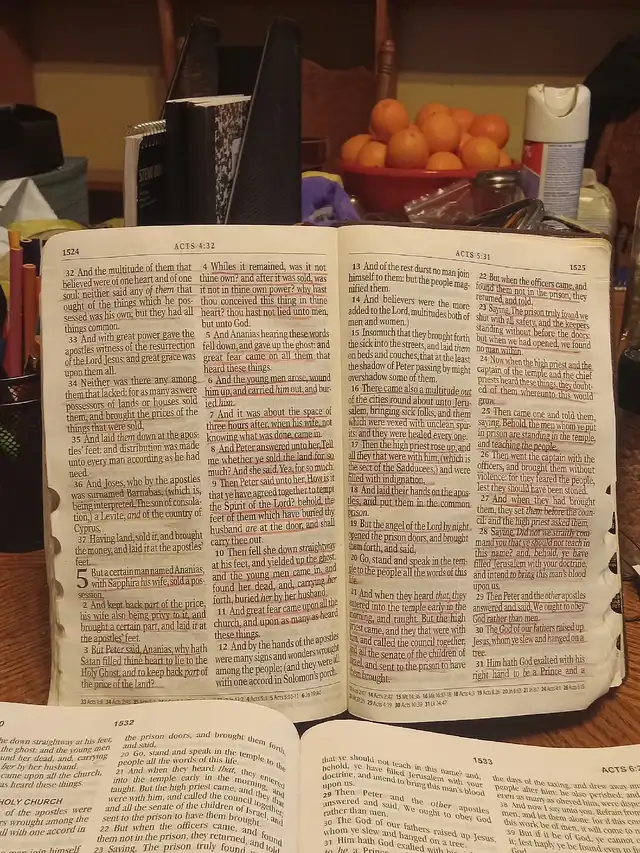 1524
ACTS 4:32
32 And the multitude of them that
believed were of one heart and of one
soul: neither said any of them that
ought of the things which he pos-
sessed was his own; but they had all
things common.
33 And with great power gave the
apostles witness of the resurrection
of the Lord Jesus: and great grace was
upon them all.
34 Neither was there any among
them that lacked: for as many as were
possessors of lands or houses sold
them, and brought the prices of the
things that were sold,
35 And laid them down at the apos-
tles' feet: and distribution was made
unto every man according as he had
need.
36 And Joses, who by the apostles
was surnamed Barnabas, (which is,
being interpreted, The son of consola-
tion,) a Levite, and of the country of
Cyprus,
37 Having land, sold it, and brought
the money, and laid it at the apostles'
feet.
5 But a certain man named Ananias,
with Sapphira his wife, sold a pos-
session,
2 And kept back part of the price,
his wife also being privy to it, and
brought a certain part, and laid it at
the apostles' feet.
3 But Peter said, Ananias, why hath
Satan filled thine heart to lie to the
Holy Ghost, and to keep back part of
the price of the land?
4 Whiles it remained, was it not
thine own? and after it was sold, was
it not in thine own power? why hast
thou conceived this thing in thine
heart? thou hast not lied unto men,
but unto God.
5 And Ananias hearing these words
fell down, and gave up the ghost: and
great fear came on all them that
heard these things.
6 And the young men arose, wound
him up, and carried him out, and bur-
ied him.
7 And it was about the space of
three hours after, when his wife, not
knowing what was done, came in.
8 And Peter answered unto her, Tell
me whether ye sold the land for so
much? And she said, Yea, for so much.
9 Then Peter said unto her, How is it
that ye have agreed together to tempt
the Spirit of the Lord? behold, the
feet of them which have buried thy
husband are at the door, and shall
carry thee out.
10 Then fell she down straightway
at his feet, and yielded up the ghost:
and the young men came in, and
found her dead, and, carrying her
forth, buried her by her husband.
11 And great fear came upon all the
church, and upon as many as heard
these things.
12 And by the hands of the apostles
were many signs and wonders wrought
among the people; (and they were all
with one accord in Solomon's porch.
ACTS 5:31
1525
13 And of the rest durst no man join
himself to them: but the people mag-
nified them.
14 And believers were the more
added to the Lord, multitudes both of
men and women.)
15 Insomuch that they brought forth
the sick into the streets, and laid them
on beds and couches, that at the least
the shadow of Peter passing by might
overshadow some of them.
16 There came also a multitude out
of the cities round about unto Jeru-
salem, bringing sick folks, and them
which were vexed with unclean spir-
its: and they were healed every one.
17 Then the high priest rose up, and
all they that were with him, (which is
the sect of the Sadducees,) and were
filled with indignation,
18 And laid their hands on the apos-
tles, and put them in the common
prison.
19 But the angel of the Lord by night
opened the prison doors, and brought
them forth, and said,
20 Go, stand and speak in the tem-
ple to the people all the words of this
life.
21 And when they heard that, they
entered into the temple early in the
morning, and taught. But the high
priest came, and they that were with
him, and called the council together,
and all the senate of the children of
Israel, and sent to the prison to have
them brought.
22 But when the officers came, and
found them not in the prison, they
returned, and told,
23 Saying, The prison truly found we
shut with all safety, and the keepers
standing without before the doors:
but when we had opened, we found
no man within.
24 Now when the high priest and the
captain of the temple and the chief
priests heard these things, they doubt-
ed of them whereunto this would
grow.
25 Then came one and told them,
saying, Behold, the men whom ye put
in prison are standing in the temple,
and teaching the people.
26 Then went the captain with the
officers, and brought them without
violence: for they feared the people,
lest they should have been stoned.
27 And when they had brought
them, they set them before the coun-
cil: and the high priest asked them,
28 Saying, Did not we straitly com-
mand you that ye should not teach in
this name? and, behold, ye have
filled Jerusalem with your doctrine,
and intend to bring this man's blood
upon us.
29 Then Peter and the other apostles
answered and said, We ought to obey
God rather than men.
30 The God of our fathers raised up
Jesus, whom ye slew and hanged on a
tree.
31 Him hath God exalted with his
right hand to be a Prince and a
1532
she down straightway at his feet,
the ghost: and the young men
her dead, and, carrying
her by her husband.
came upon all the church,
as heard these things
HOLY CHURCH
of the apostles were
wrought among the
all with one accord in
the prison doors, and brought them forth
and said,
20 Go, stand and speak in the temple to the
people all the words of this life.
21 And when they heard that, they entered
into the temple early in the morning, and
taught. But the high priest came, and they that
were with him, and called the council together,
and all the senate of the children of Israel, and
sent to the prison to have them brought.
22 But when the officers came, and found
them not in the prison, they returned, and told
23 Saying, The prison truly found
1533
ACTS 5:
that ye should not teach in this name? and,
behold, ye have filled Jerusalem with your
doctrine, and intend to bring this man's blood
upon us.
29 Then Peter and the other apostles
answered and said, We ought to obey God
rather than men.
30 The God of our fathers raised up Jesus,
whom ye slew and hanged on a tree.
31 Him hath God exalted with his right hand
the days of the taxing, and drew away much
people after him: he also perished; and